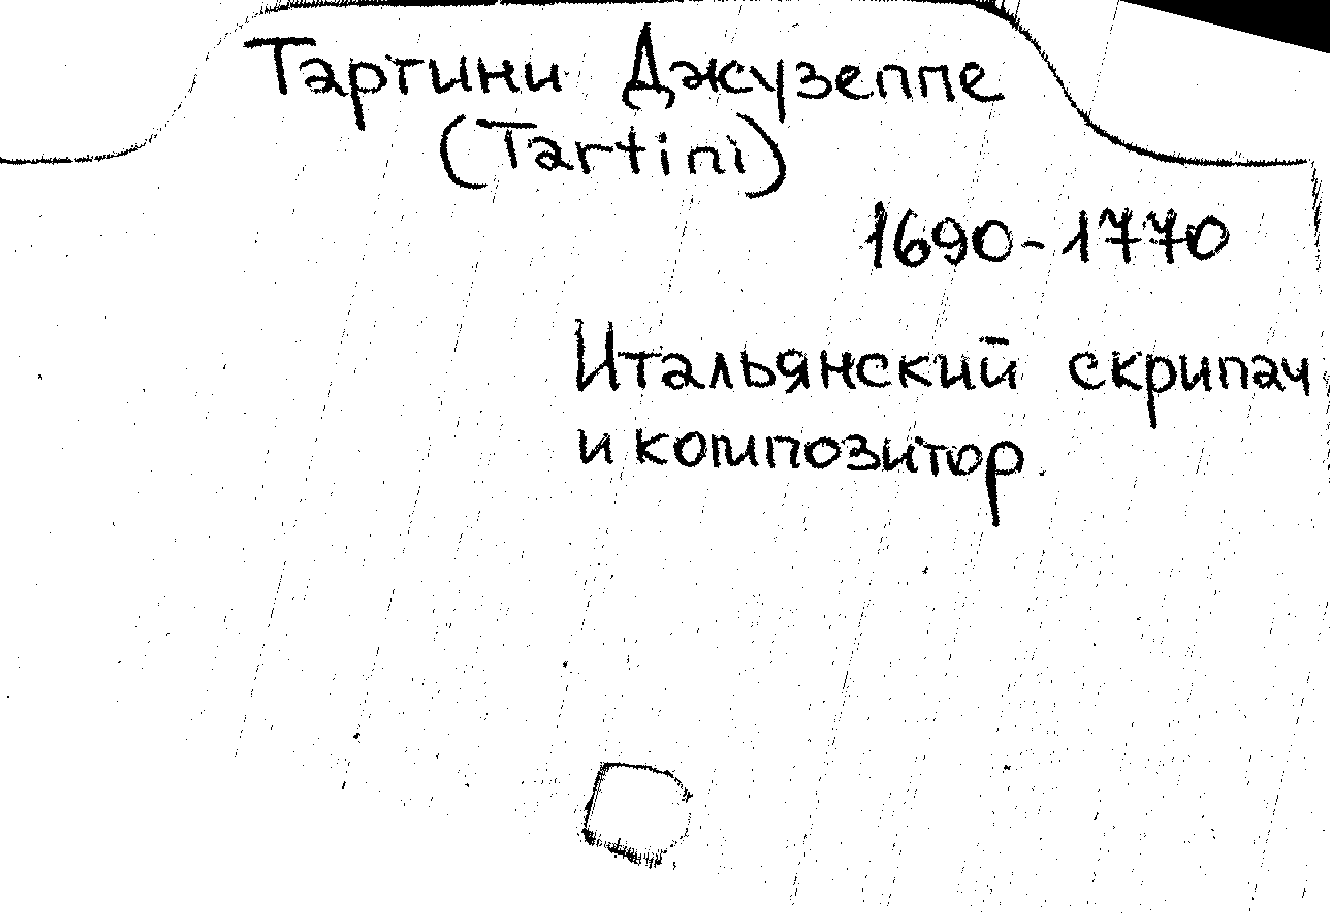 Тартини Джузеппе
(Tartini)
1690-1770
Итальянский скрипач
и композитор.